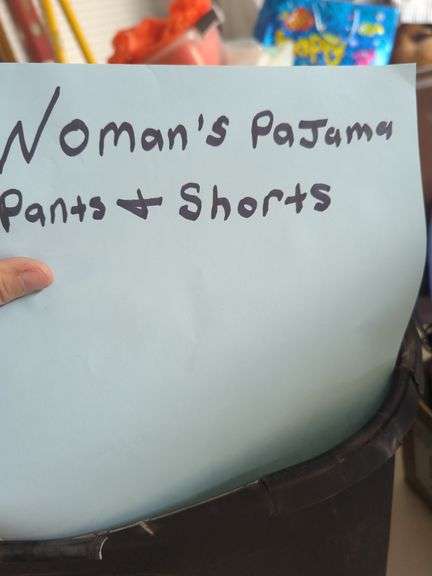 Woman's Pajama
Pants + Shorts
happy